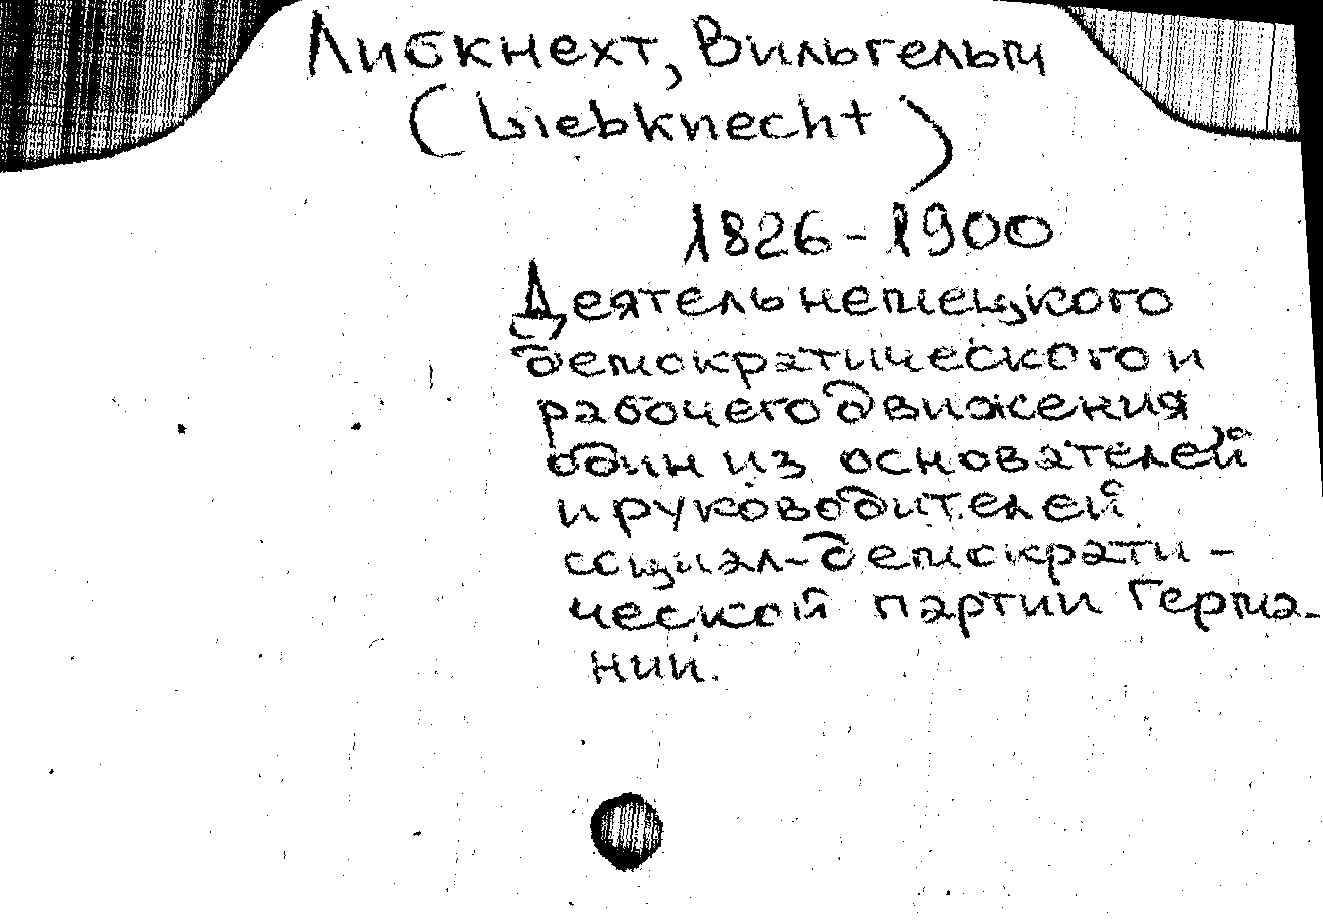 Либкнехт, Вильгельм
(Liebknecht)
1826-1900
Деятель немецкого
демократического и
рабочего движения
один из основателей
и руководителей
социал-демократи-
ческой партии Герма-
нии.